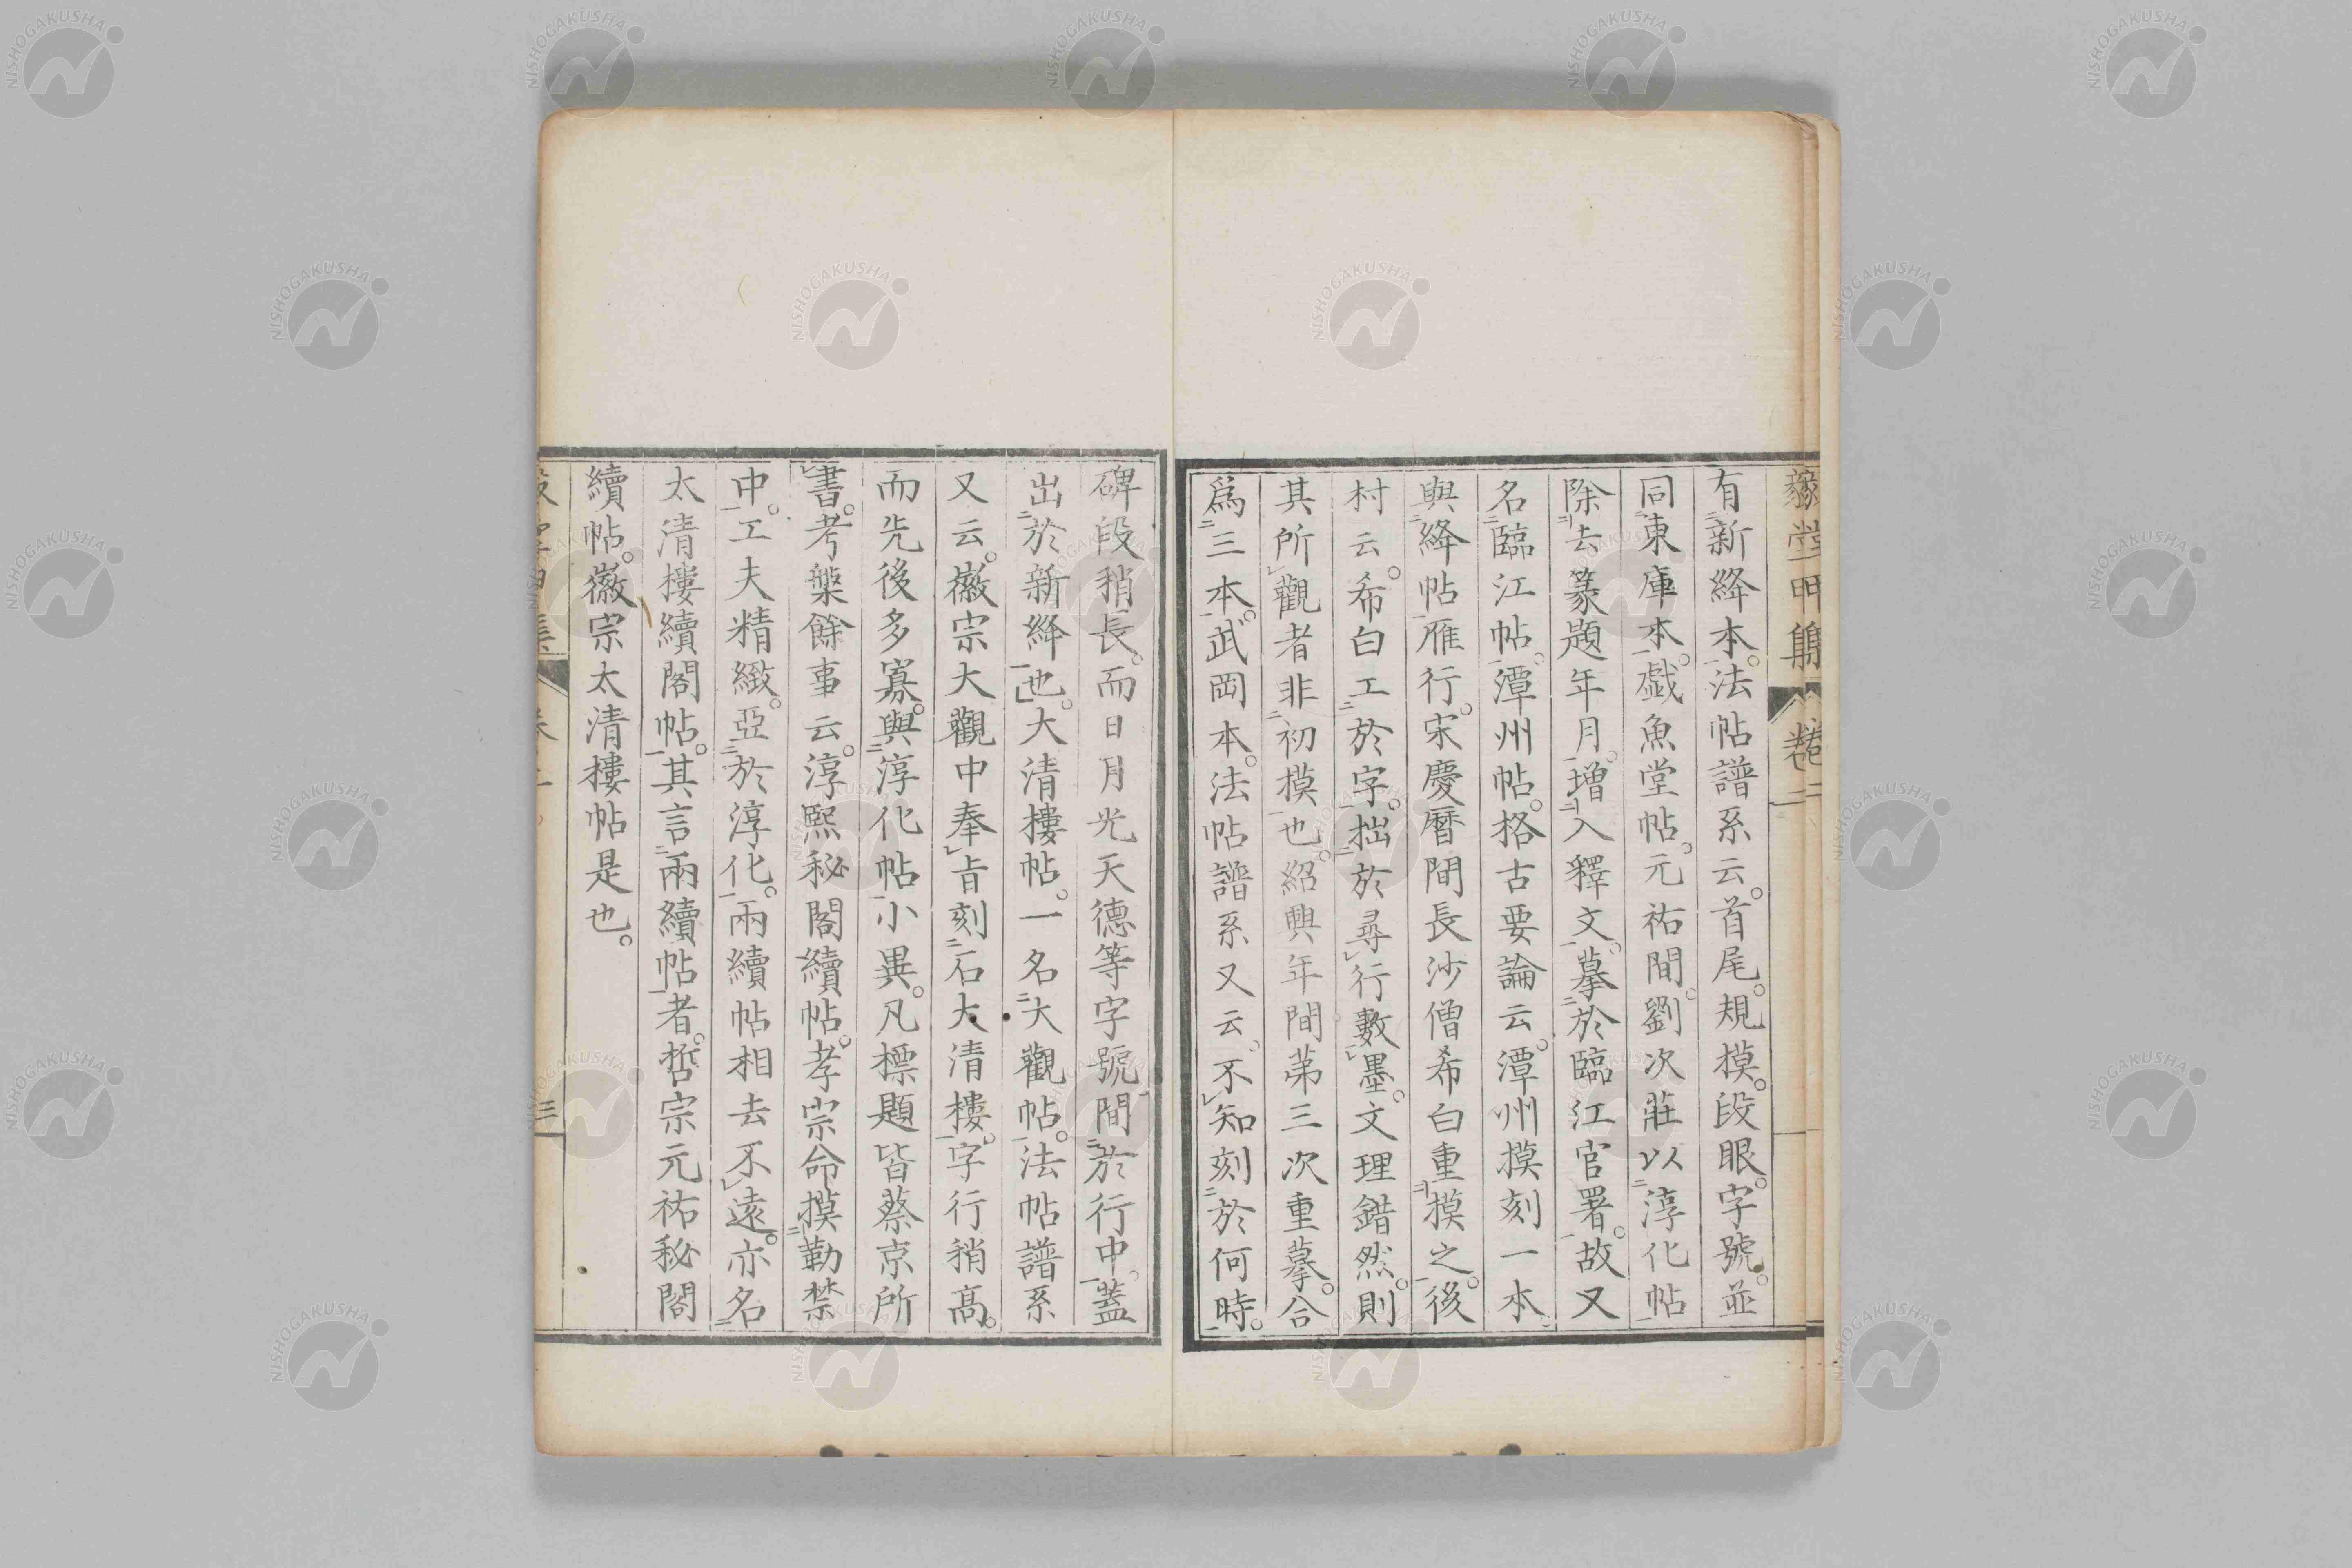 有新絳本。法帖譜系云。首尾。規摸。段眼。字號。並
同東庫本。戯魚堂帖。元祐間。劉次莊以淳化帖
除去篆題年月。增入釋文。摹於臨江官署。故又
名臨江帖。潭州帖。格古要論云。潭州摸刻一本。
與絳帖雁行。宋慶曆間長沙僧希白重摸之。後
村云。希白工於字。拙於尋行數墨。文理錯然。則
其所觀者非初摸也。紹興年間。第三次重摹。合
爲三本。武岡本。法帖譜系又云。不知刻於何時。
碑段稍長。而日月光天德等字號間於行中。蓋
出於新絳也。大清樓帖。一名大觀帖。法帖譜系
又云。徽宗大觀中奉旨刻石大清樓。字行稍高。
而先後多寡。與淳化帖小異。凡標題皆蔡京所
書。考槃餘事云。淳熙秘閣續帖。孝宗命摸勒禁
中。工夫精緻。亞於淳化。兩續帖相去不遠。亦名
太清樓續閣帖。其言兩續帖者。哲宗元祐秘閣
續帖。徽宗太清樓帖是也。
三
NISHOGAKUSHA